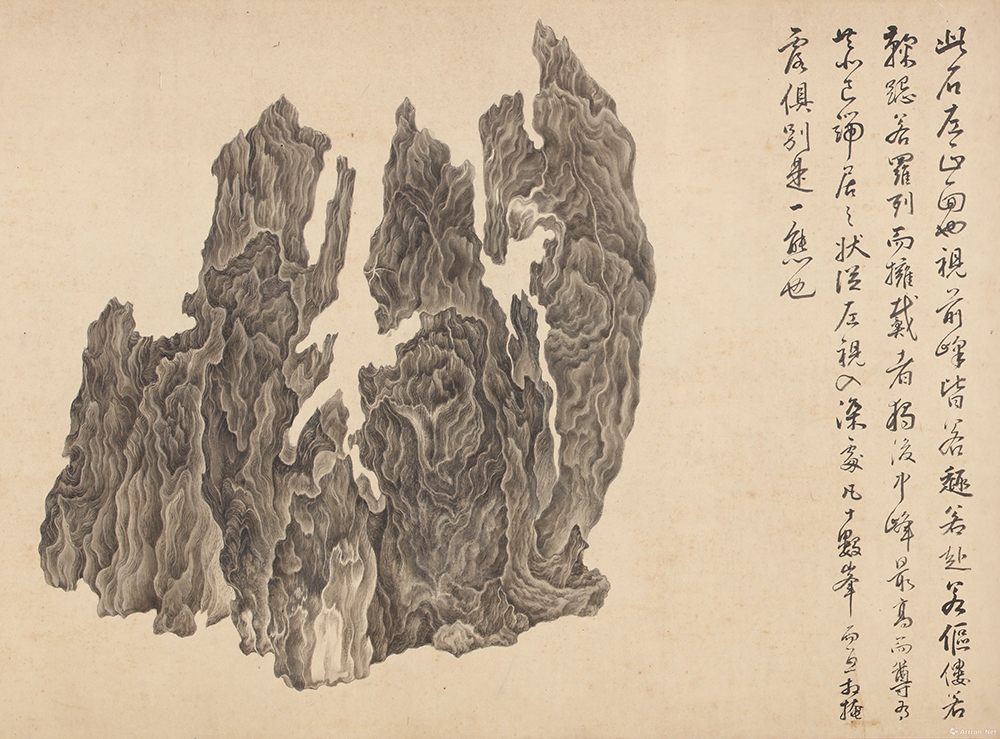 此石左正面也視前峰皆若趨若赴若傴僂若
鞠跽若羅列而擁戴者獨後中峰最高而尊有
恭己端居之狀從左視入深處凡十數峯而互相掩
露俱別是一態也
Artron.Net